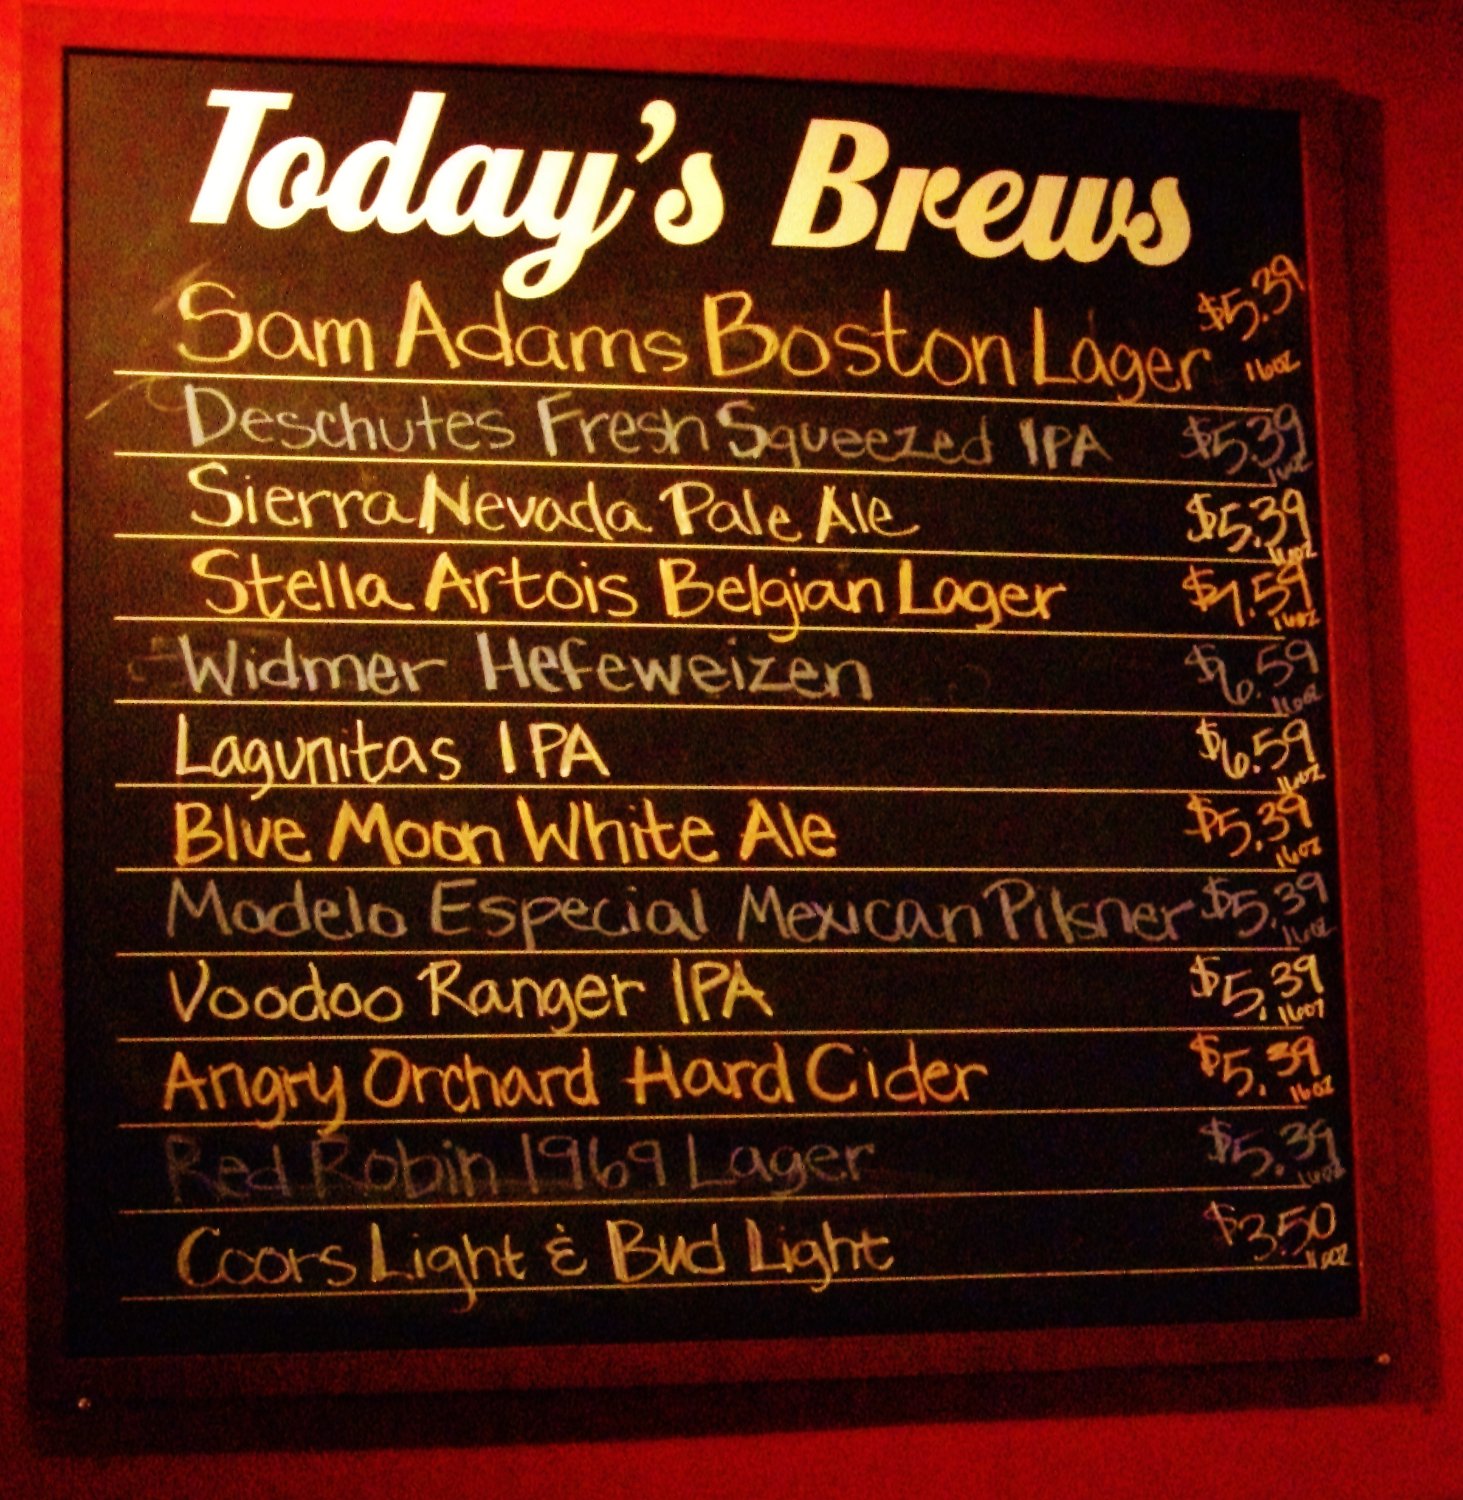 Today's Brews
Sam Adams Boston Lager $5.39 16oz
Deschutes Fresh Squeezed IPA $5.39 16oz
Sierra Nevada Pale Ale $5.39 16oz
Stella Artois Belgian Lager $7.59 16oz
Widmer Hefeweizen $6.59 16oz
Lagunitas IPA $6.59 16oz
Blue Moon White Ale $5.39 16oz
Modelo Especial Mexican Pilsner $5.39 16oz
Voodoo Ranger IPA $5.39 16oz
Angry Orchard Hard Cider $5.39 16oz
Red Robin 1969 Lager $5.39 16oz
Coors Light & Bud Light $3.50 16oz